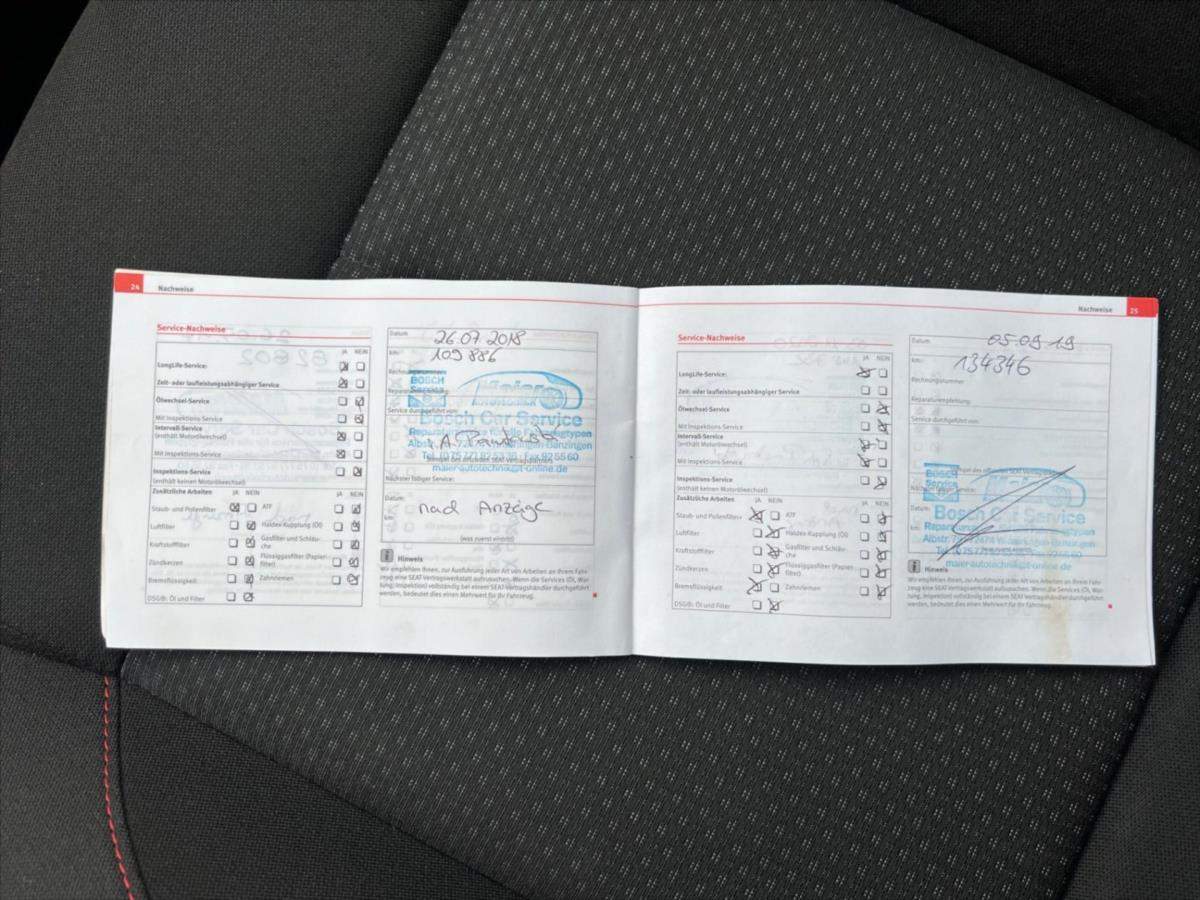 24
Nachweise
Service-Nachweise
JA NEIN
LongLife-Service:
Zeit- oder laufleistungsabhängiger Service
Ölwechsel-Service
Mit Inspektions-Service
Intervall-Service
(enthält Motorölwechsel)
Mit Inspektions-Service
Inspektions-Service
(enthält keinen Motorölwechsel)
Zusätzliche Arbeiten JA NEIN JA NEIN
Staub- und Pollenfilter ATF
Luftfilter Haldex-Kupplung (Öl)
Kraftstofffilter Gasfilter und Schläu-
che
Zündkerzen Flüssiggasfilter (Papier-
filter)
Bremsflüssigkeit Zahnriemen
DSG®: Öl und Filter
Datum: 26.07 2018
km: 109 886
Rechnungsnummer
BOSCH
Service
Maier
Autotechnik
Service durchgeführt von:
Bosch Car Service
maier-autotechnik@t-online.de
Nächster fälliger Service:
Datum:
km: nach Anzeige
(was zuerst eintritt)
Hinweis
Wir empfehlen Ihnen, zur Ausführung jeder Art von Arbeiten an Ihrem Fahr-
zeug eine SEAT Vertragswerkstatt aufzusuchen. Wenn die Services (Öl, War-
tung, Inspektion) vollständig bei einem SEAT Vertragshändler durchgeführt
werden, bedeutet dies einen Mehrwert für Ihr Fahrzeug.
Nachweise
25
Service-Nachweise
JA NEIN
LongLife-Service:
Zeit- oder laufleistungsabhängiger Service
Ölwechsel-Service
Mit Inspektions-Service
Intervall-Service
(enthält Motorölwechsel)
Mit Inspektions-Service
Inspektions-Service
(enthält keinen Motorölwechsel)
Zusätzliche Arbeiten JA NEIN JA NEIN
Staub- und Pollenfilter ATF
Luftfilter Haldex-Kupplung (Öl)
Kraftstofffilter Gasfilter und Schläu-
che
Zündkerzen Flüssiggasfilter (Papier-
filter)
Bremsflüssigkeit Zahnriemen
DSG®: Öl und Filter
Datum: 05.09 19
km: 134346
Rechnungsnummer
Reparaturempfehlung:
Service durchgeführt von:
BOSCH
Service
Maier
Datum:
Bosch Car Service
maier-autotechnik@t-online.de
Hinweis
Wir empfehlen Ihnen, zur Ausführung jeder Art von Arbeiten an Ihrem Fahr-
zeug eine SEAT Vertragswerkstatt aufzusuchen. Wenn die Services (Öl, War-
tung, Inspektion) vollständig bei einem SEAT Vertragshändler durchgeführt
werden, bedeutet dies einen Mehrwert für Ihr Fahrzeug.